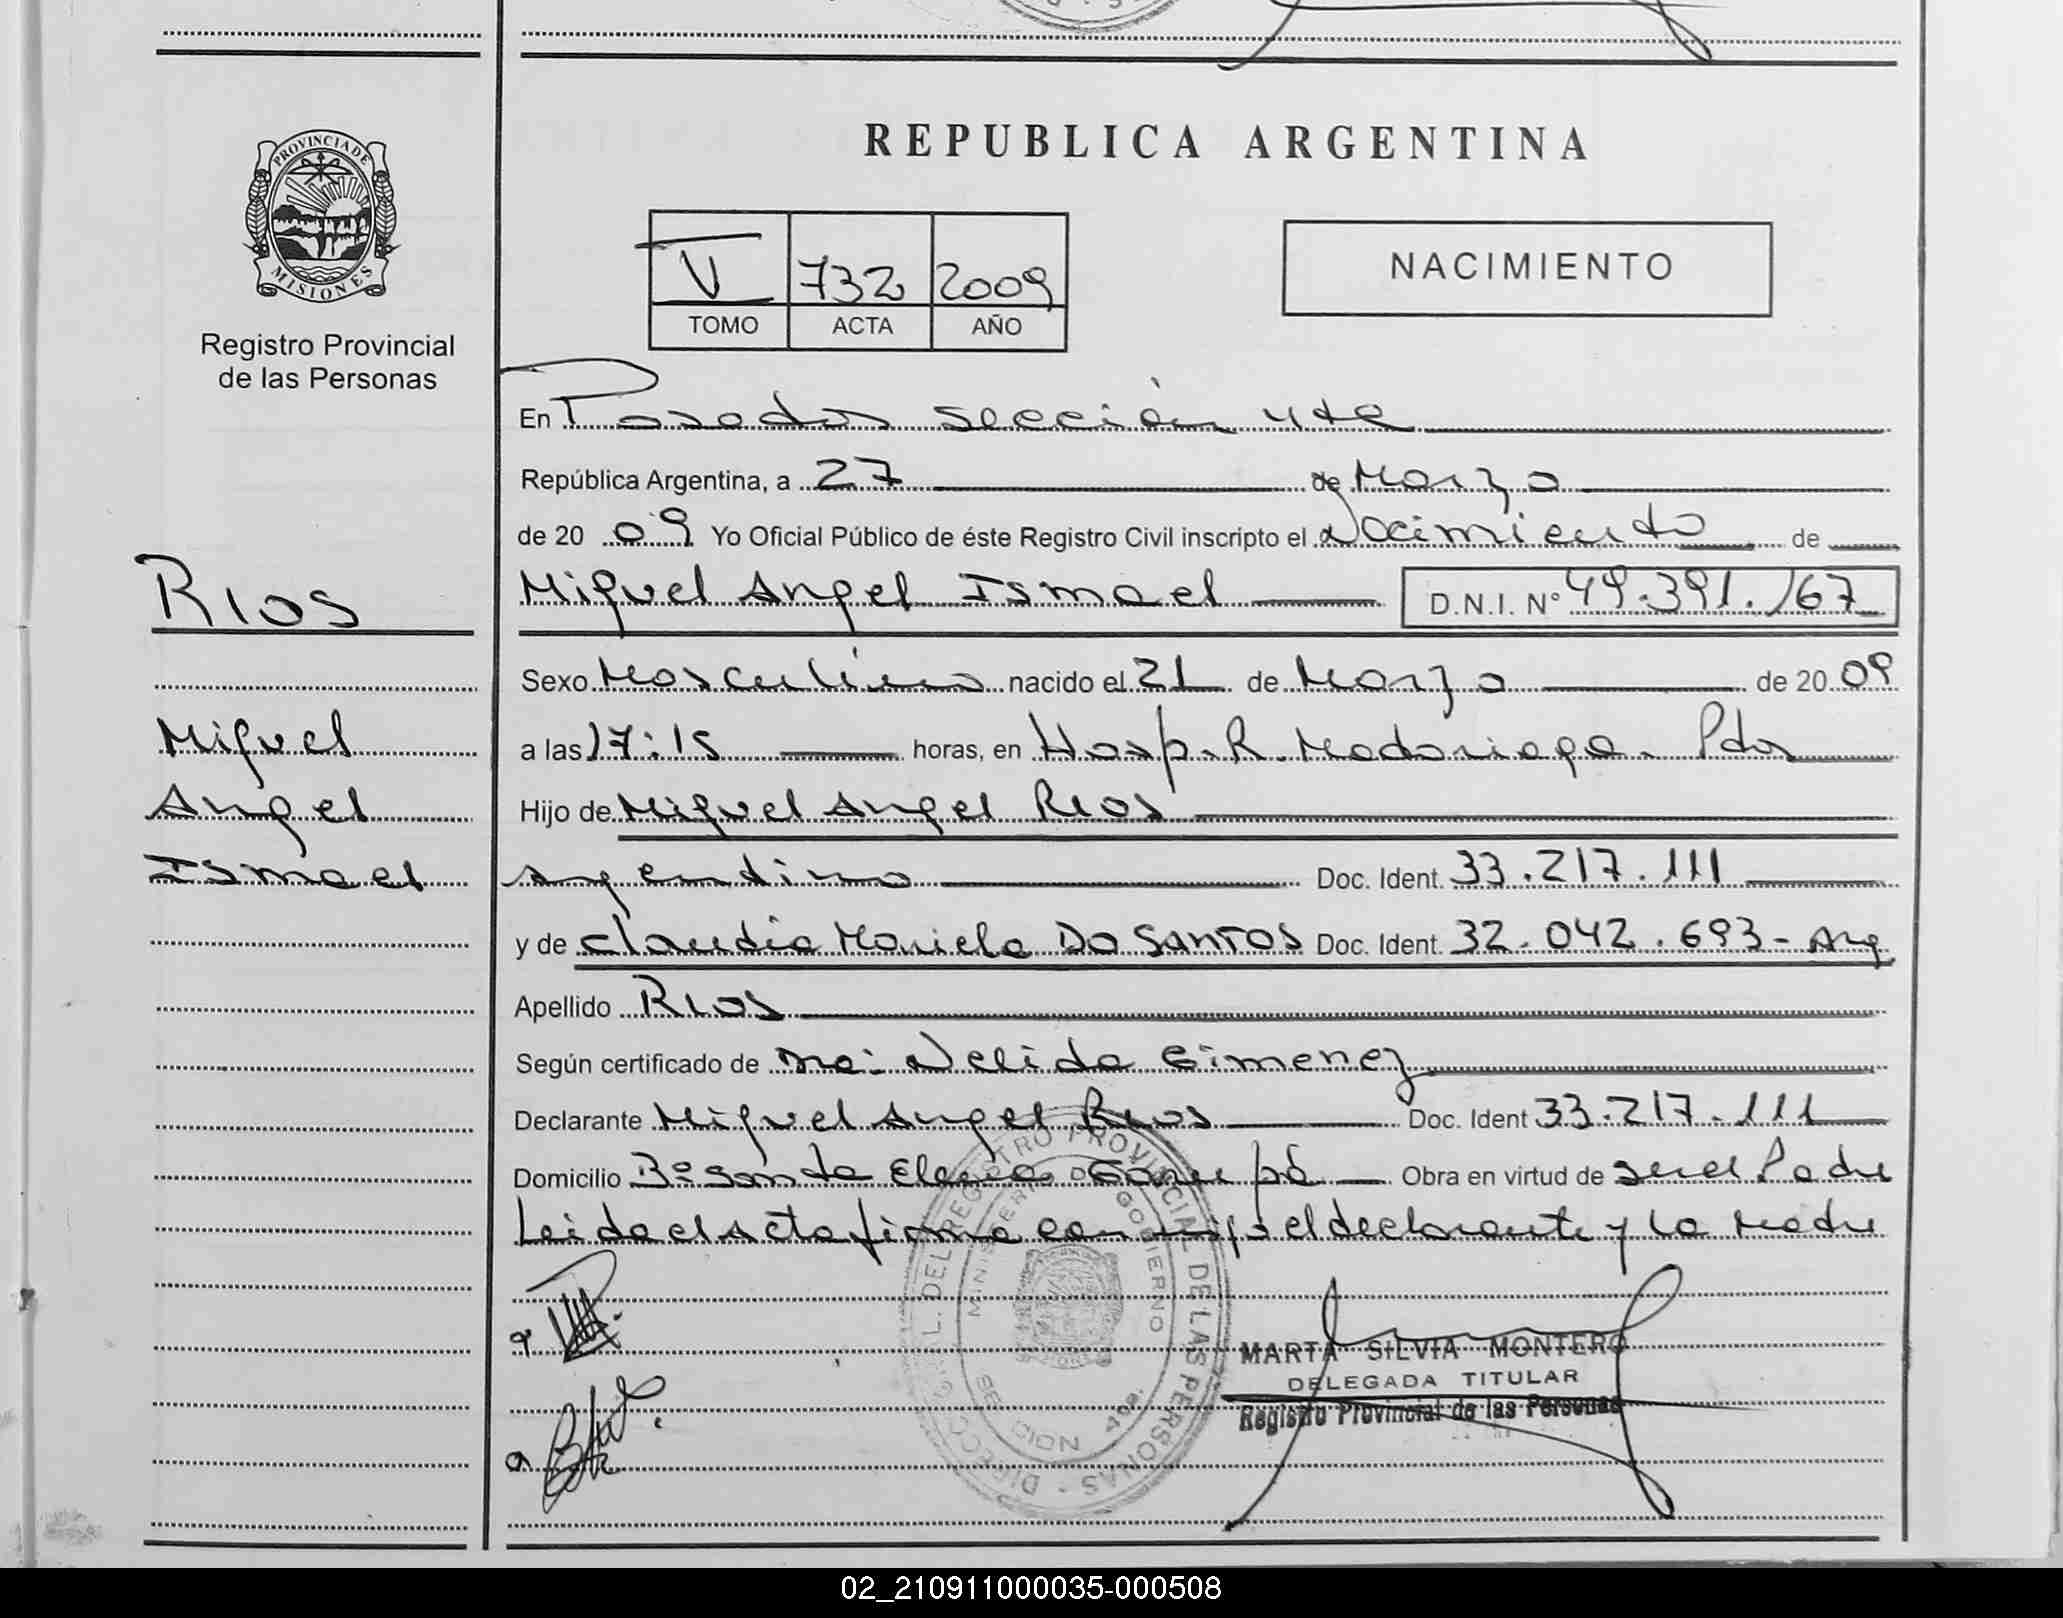 PROVINCIA DE
MISIONES
Registro Provincial
de las Personas
RIOS
Miguel
Angel
Ismael
REPUBLICA ARGENTINA
V 732 2009
TOMO ACTA AÑO
NACIMIENTO
En Posadas sección 4ta
República Argentina, a 27 de Marzo
de 20 09 Yo Oficial Público de éste Registro Civil inscripto el Nacimiento de
Miguel Angel Ismael D.N.I. N° 49.391.167
Sexo Masculino nacido el 21 de Marzo de 20 09
a las 17:15 horas, en Hosp. R. Madariaga - Pdas
Hijo de Miguel Angel RIOS
Argentino Doc. Ident. 33.217.111
y de Claudia Mariela DO SANTOS Doc. Ident. 32.042.693 - Arg
Apellido RIOS
Según certificado de Nelida Gimenez
Declarante Miguel Angel Rios Doc. Ident 33.217.111
Domicilio Bº Santa Elena Garupá Obra en virtud de ser el Padre
Leida el acta firma conmigo el declarante y la Madre
DIRECC. GRAL. DEL REGISTRO PROVINCIAL DE LAS PERSONAS
MINISTERIO DE GOBIERNO
SECCION 4ta.
MARTA SILVIA MONTERO
DELEGADA TITULAR
Registro Provincial de las Personas
02_210911000035-000508